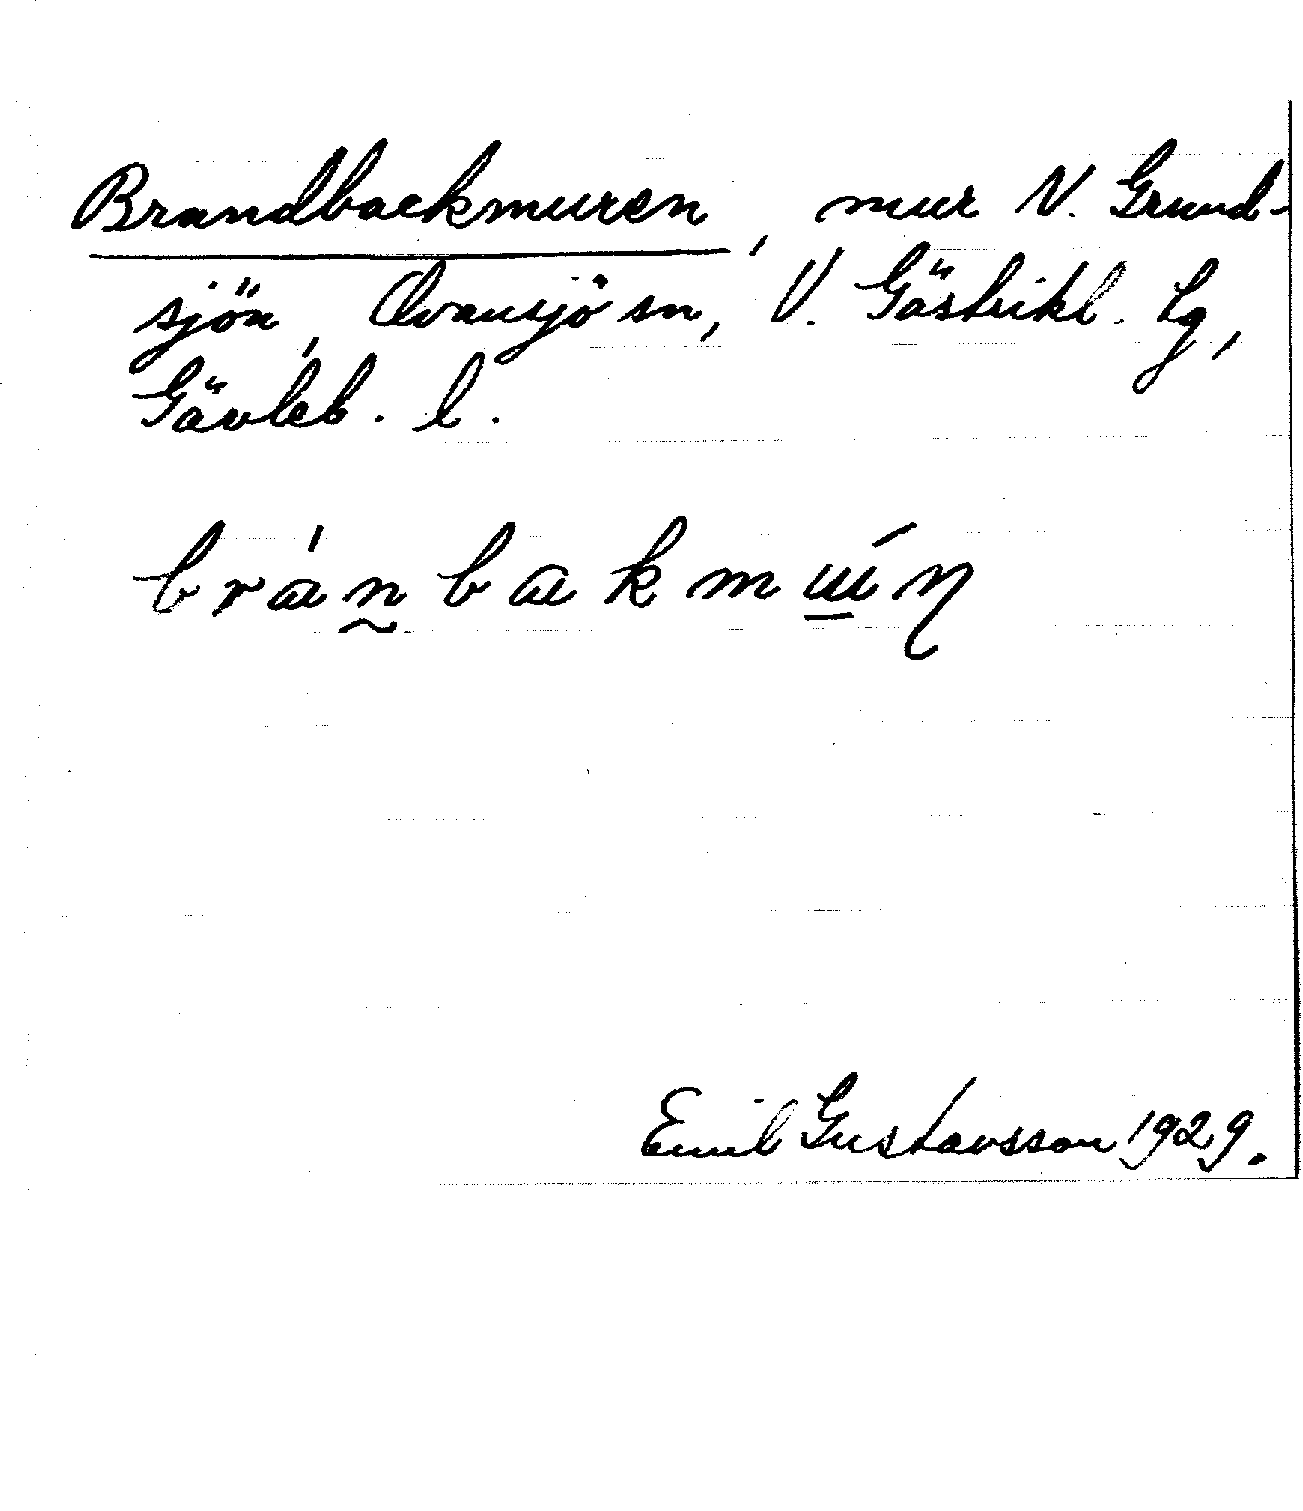 Brandbackmuren, mur N. Grund-
sjön, Ovansjö sn, V. Gästrikl. tg,
Gävleb. l.
bránbakmúŋ
Emil Gustavsson 1929.